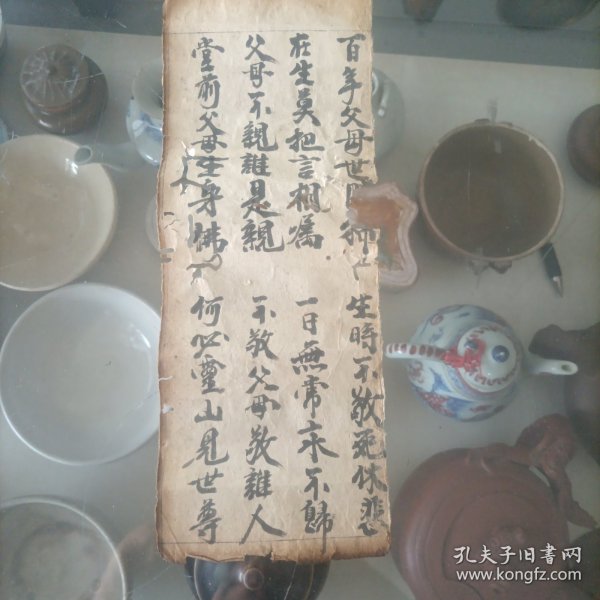 百年父母世 生時不敬死休悲
在生莫把言相 一日無常永不歸
父母不親誰是親 不敬父母敬誰人
堂前父母生身佛 何必靈山見世尊
孔夫子旧书网
www.kongfz.com